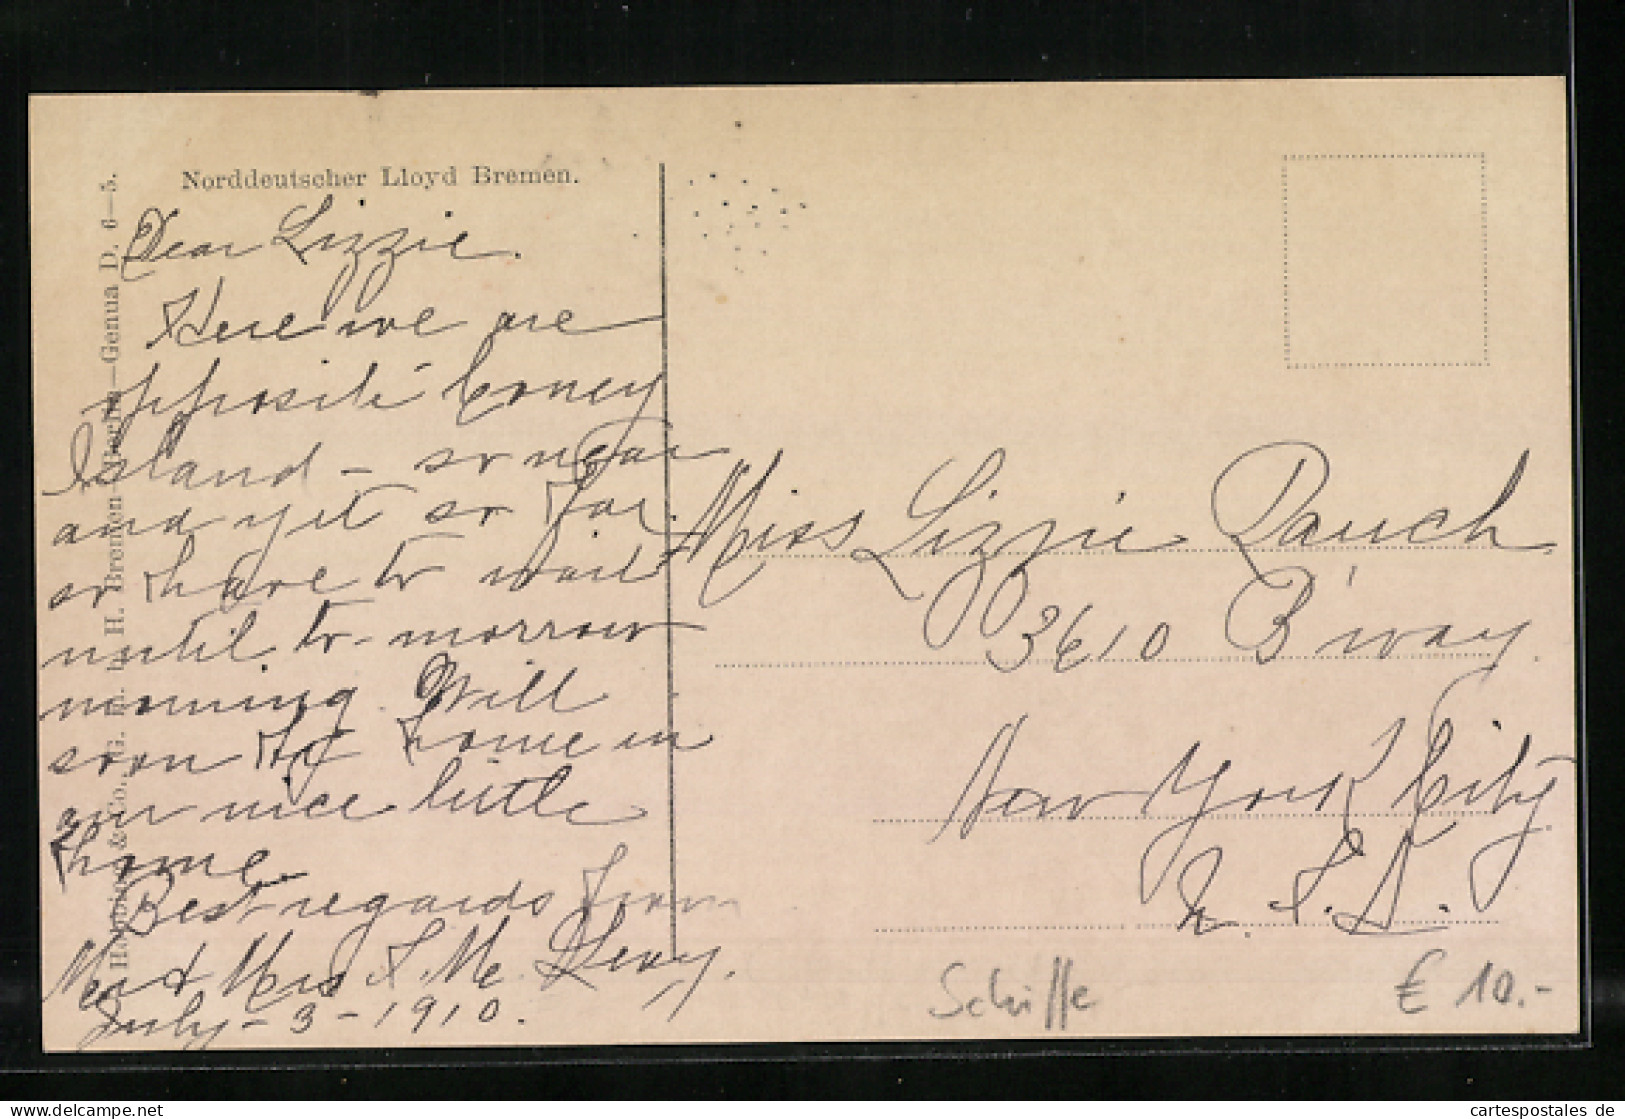 Norddeutscher Lloyd Bremen.
Dear Lizzie.
Here we are
opposite Coney
Island – so near
and yet so far.
so have to wait
until to-morrow
morning. Will
soon be home in
our nice little
home.
Best regards from
Mr & Mrs S. M. Levy.
July – 3 – 1910.
& Co., G. m. b. H. Bremen—Berlin—Genua D. 6—5.
Miss Lizzie Rauch
3610 B'way.
New York City
U. S. A.
Schiffe
€ 10.-
www.cartespostales.com
cartespostales de